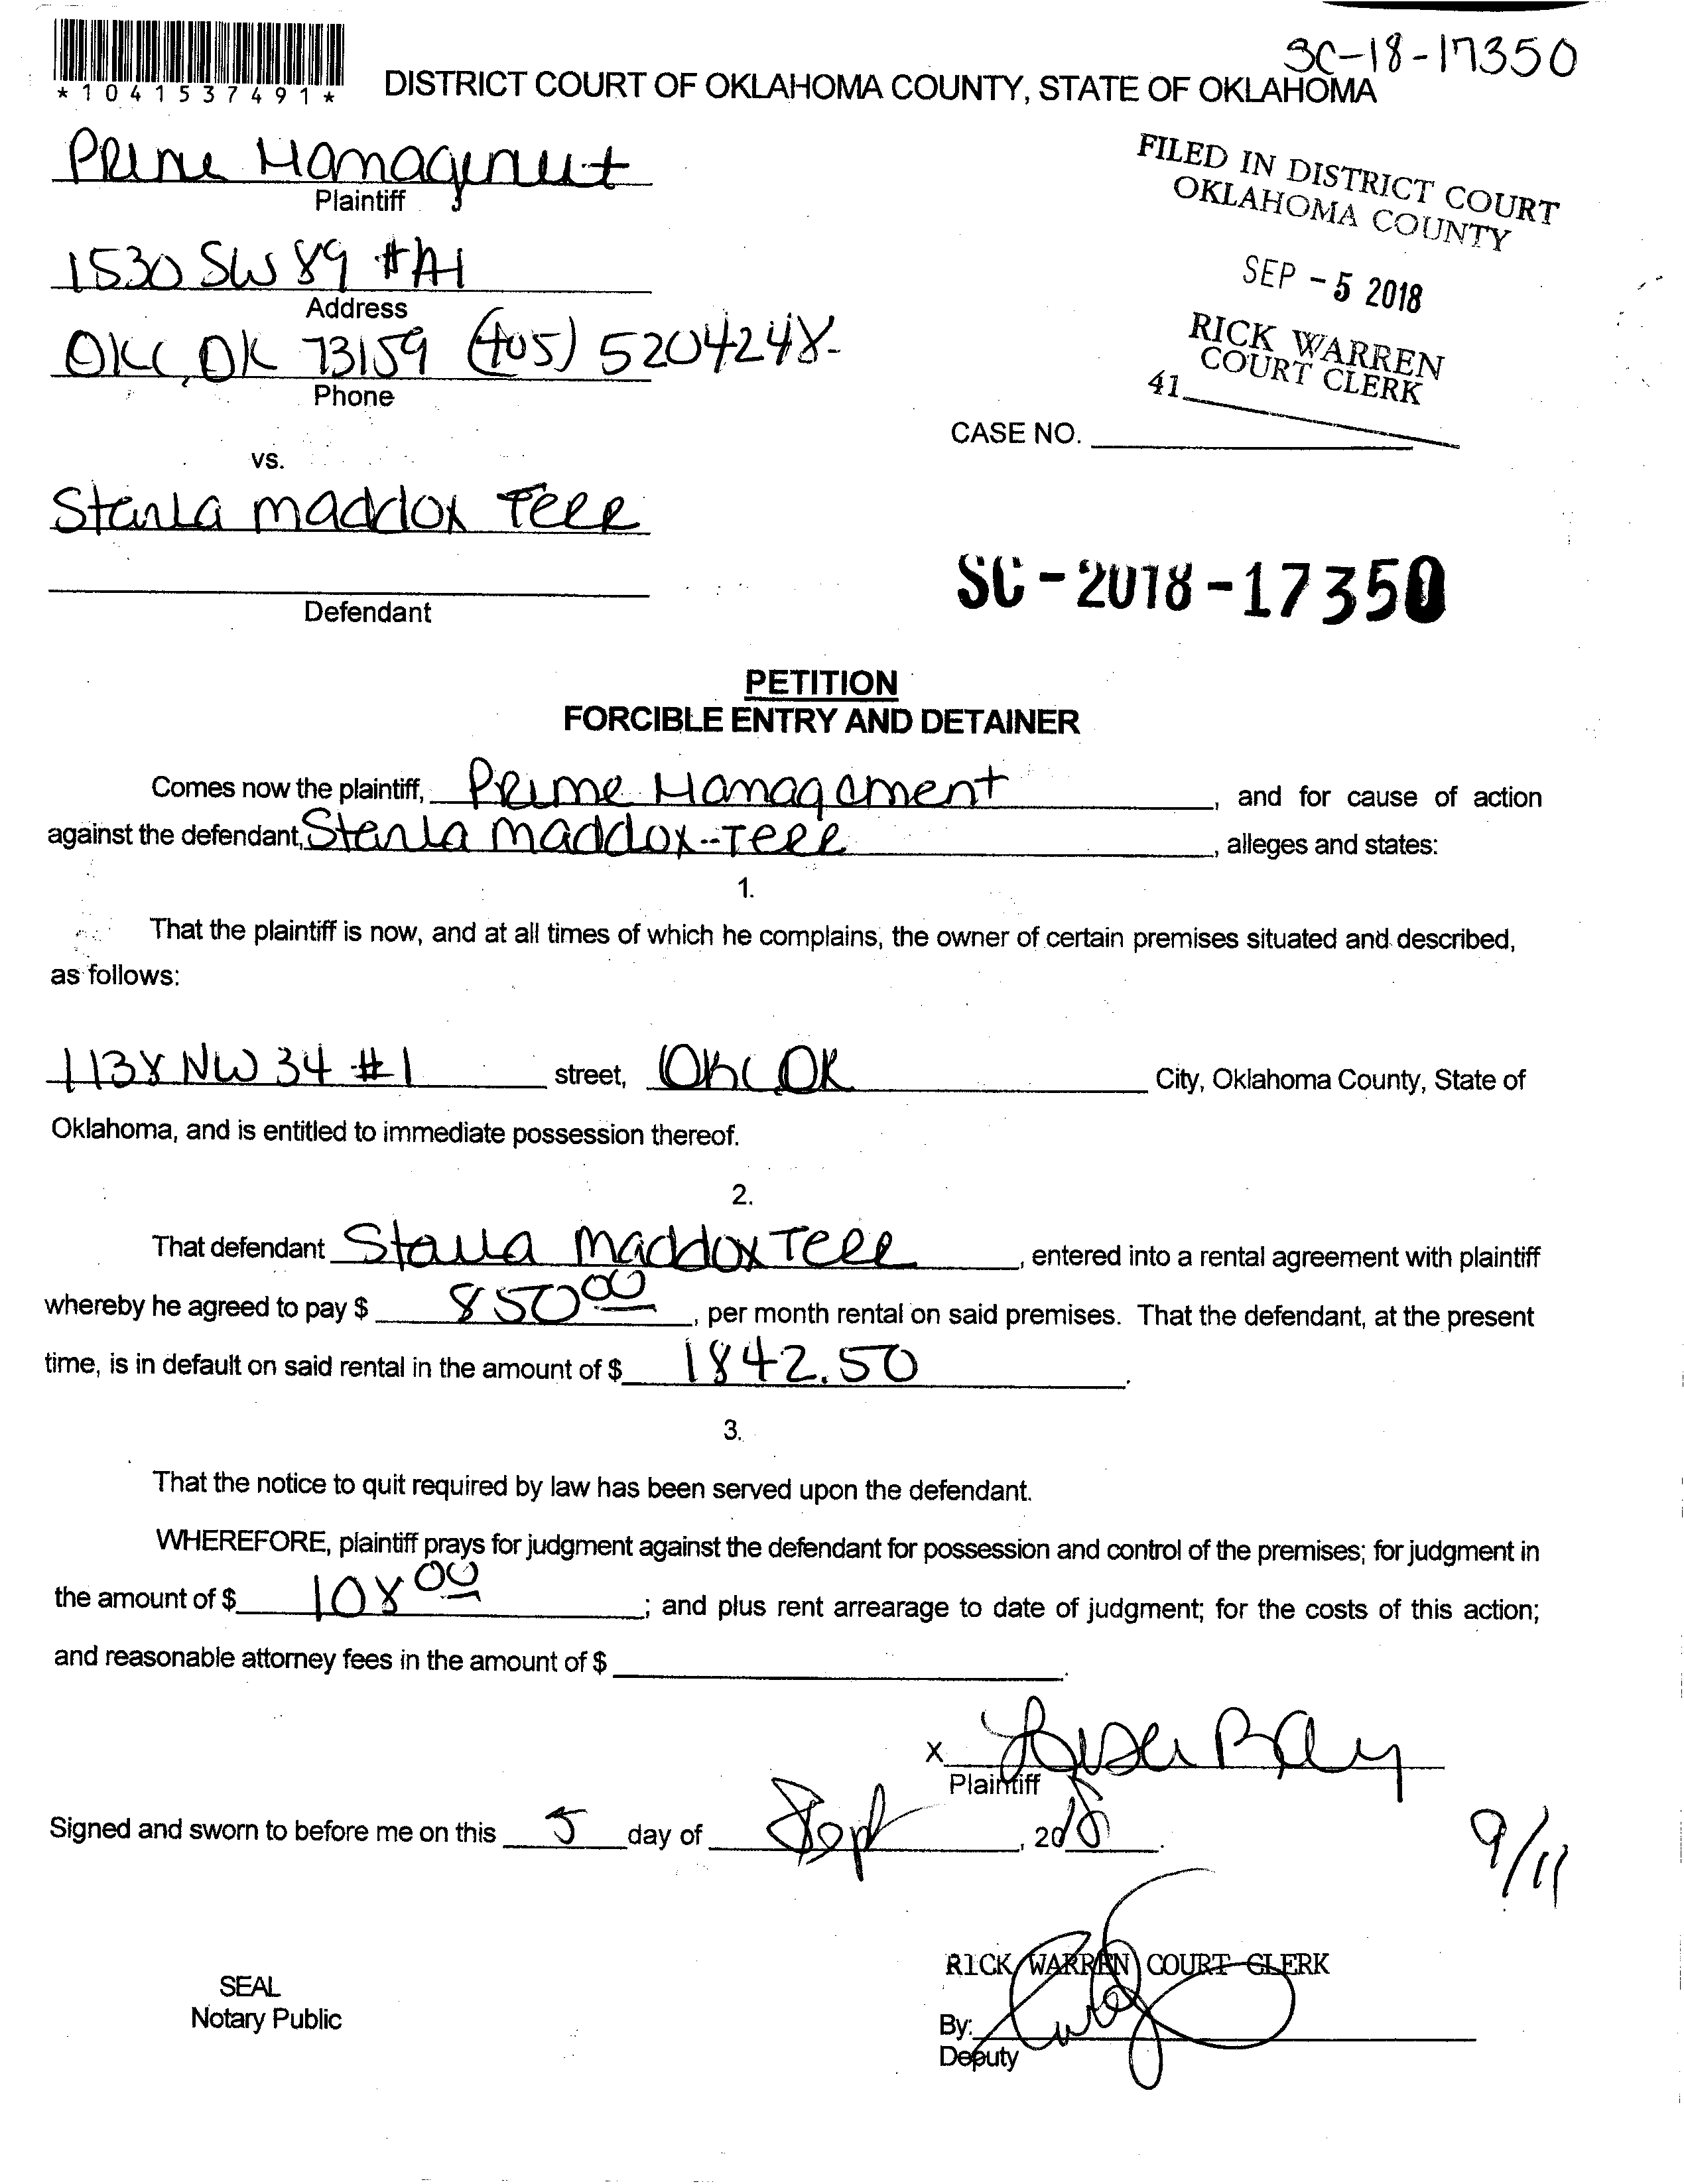 SC-18-17350
*1041537491*
DISTRICT COURT OF OKLAHOMA COUNTY, STATE OF OKLAHOMA
Prime Management
Plaintiff
FILED IN DISTRICT COURT
OKLAHOMA COUNTY
1530 SW 89 #A1
Address
SEP - 5 2018
OKC, OK 73159 (405) 5204248
Phone
RICK WARREN
COURT CLERK
41
CASE NO.
vs.
Starla Maddox Terr
Defendant
SC-2018-17350
PETITION
FORCIBLE ENTRY AND DETAINER
Comes now the plaintiff, Prime Managament, and for cause of action
against the defendant, Starla Maddox-Terr, alleges and states:
1.
That the plaintiff is now, and at all times of which he complains, the owner of certain premises situated and described,
as follows:
1138 NW 34 #1 street, OKC OK City, Oklahoma County, State of
Oklahoma, and is entitled to immediate possession thereof.
2.
That defendant Starla Maddox Terr, entered into a rental agreement with plaintiff
whereby he agreed to pay $ 850 00, per month rental on said premises. That the defendant, at the present
time, is in default on said rental in the amount of $ 1842.50.
3.
That the notice to quit required by law has been served upon the defendant.
WHEREFORE, plaintiff prays for judgment against the defendant for possession and control of the premises; for judgment in
the amount of $ 108 00; and plus rent arrearage to date of judgment; for the costs of this action;
and reasonable attorney fees in the amount of $.
X
Plaintiff
Signed and sworn to before me on this 5 day of Sept, 2018.
9/11
RICK WARREN COURT CLERK
SEAL
Notary Public
By:
Deputy